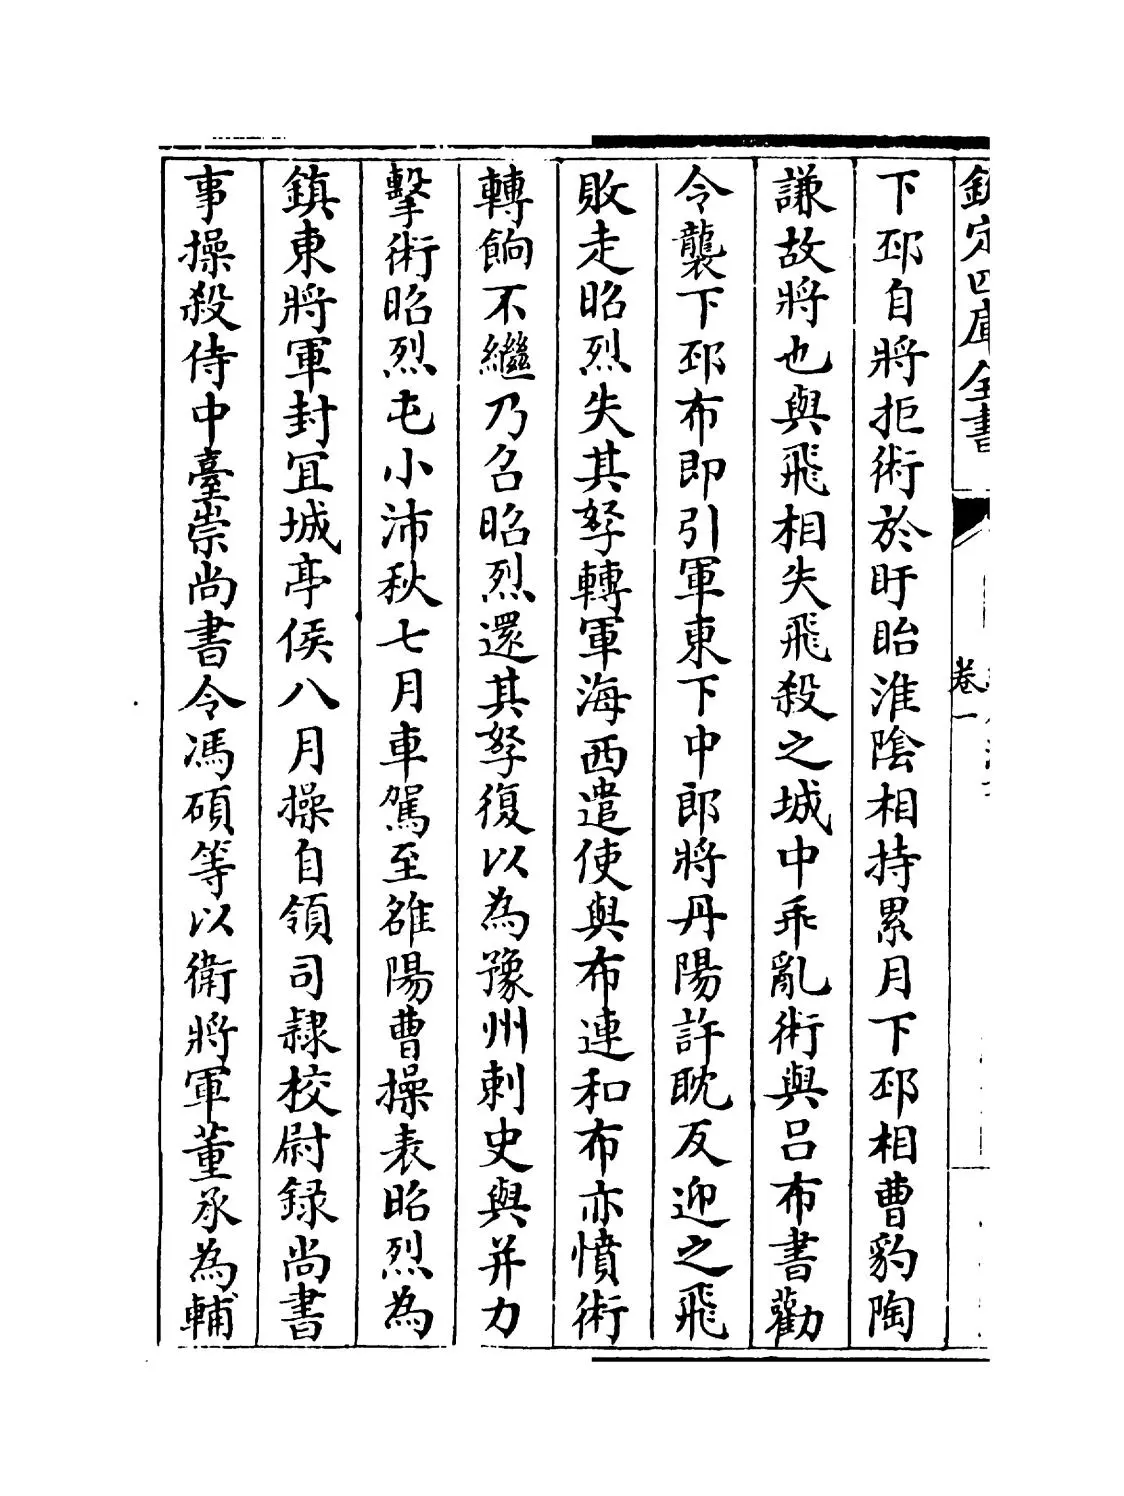 欽定四庫全書
卷一
下邳自將拒術於盱眙淮陰相持累月下邳相曹豹陶
謙故將也與飛相失飛殺之城中乖亂術與吕布書勸
令襲下邳布即引軍東下中郎將丹陽許耽反迎之飛
敗走昭烈失其孥轉軍海西遣使與布連和布亦憤術
轉餉不繼乃召昭烈還其孥復以為豫州刺史與并力
擊術昭烈屯小沛秋七月車駕至雒陽曹操表昭烈為
鎮東將軍封冝城亭侯八月操自領司隷校尉録尚書
事操殺侍中臺崇尚書令馮碩等以衛將軍董承為輔